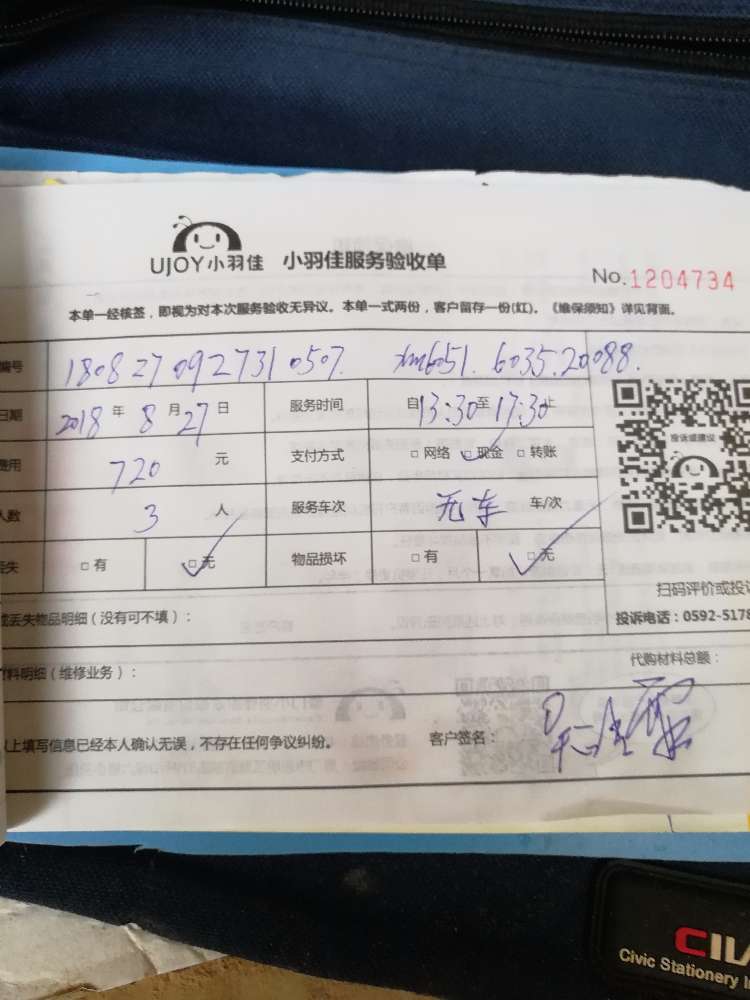 UJOY小羽佳 小羽佳服务验收单
No.1204734
本单一经核签，即视为对本次服务验收无异议。本单一式两份，客户留存一份(红)。《维保须知》详见背面。
编号 180827092731 0507. xm6051. 6035.20088.
日期 2018 年 8 月 27 日 服务时间 自 13:30 至 17:30 止
费用 720 元 支付方式 □ 网络 □ 现金 □ 转账
人数 3 人 服务车次 无车 车/次
丢失 □ 有 □ 无 物品损坏 □ 有 □ 无
投诉或建议
扫码评价或投诉
或丢失物品明细（没有可不填）：
投诉电话：0592-5178
材料明细（维修业务）：
代购材料总额：
以上填写信息已经本人确认无误，不存在任何争议纠纷。 客户签名：
CIVA
Civic Stationery I